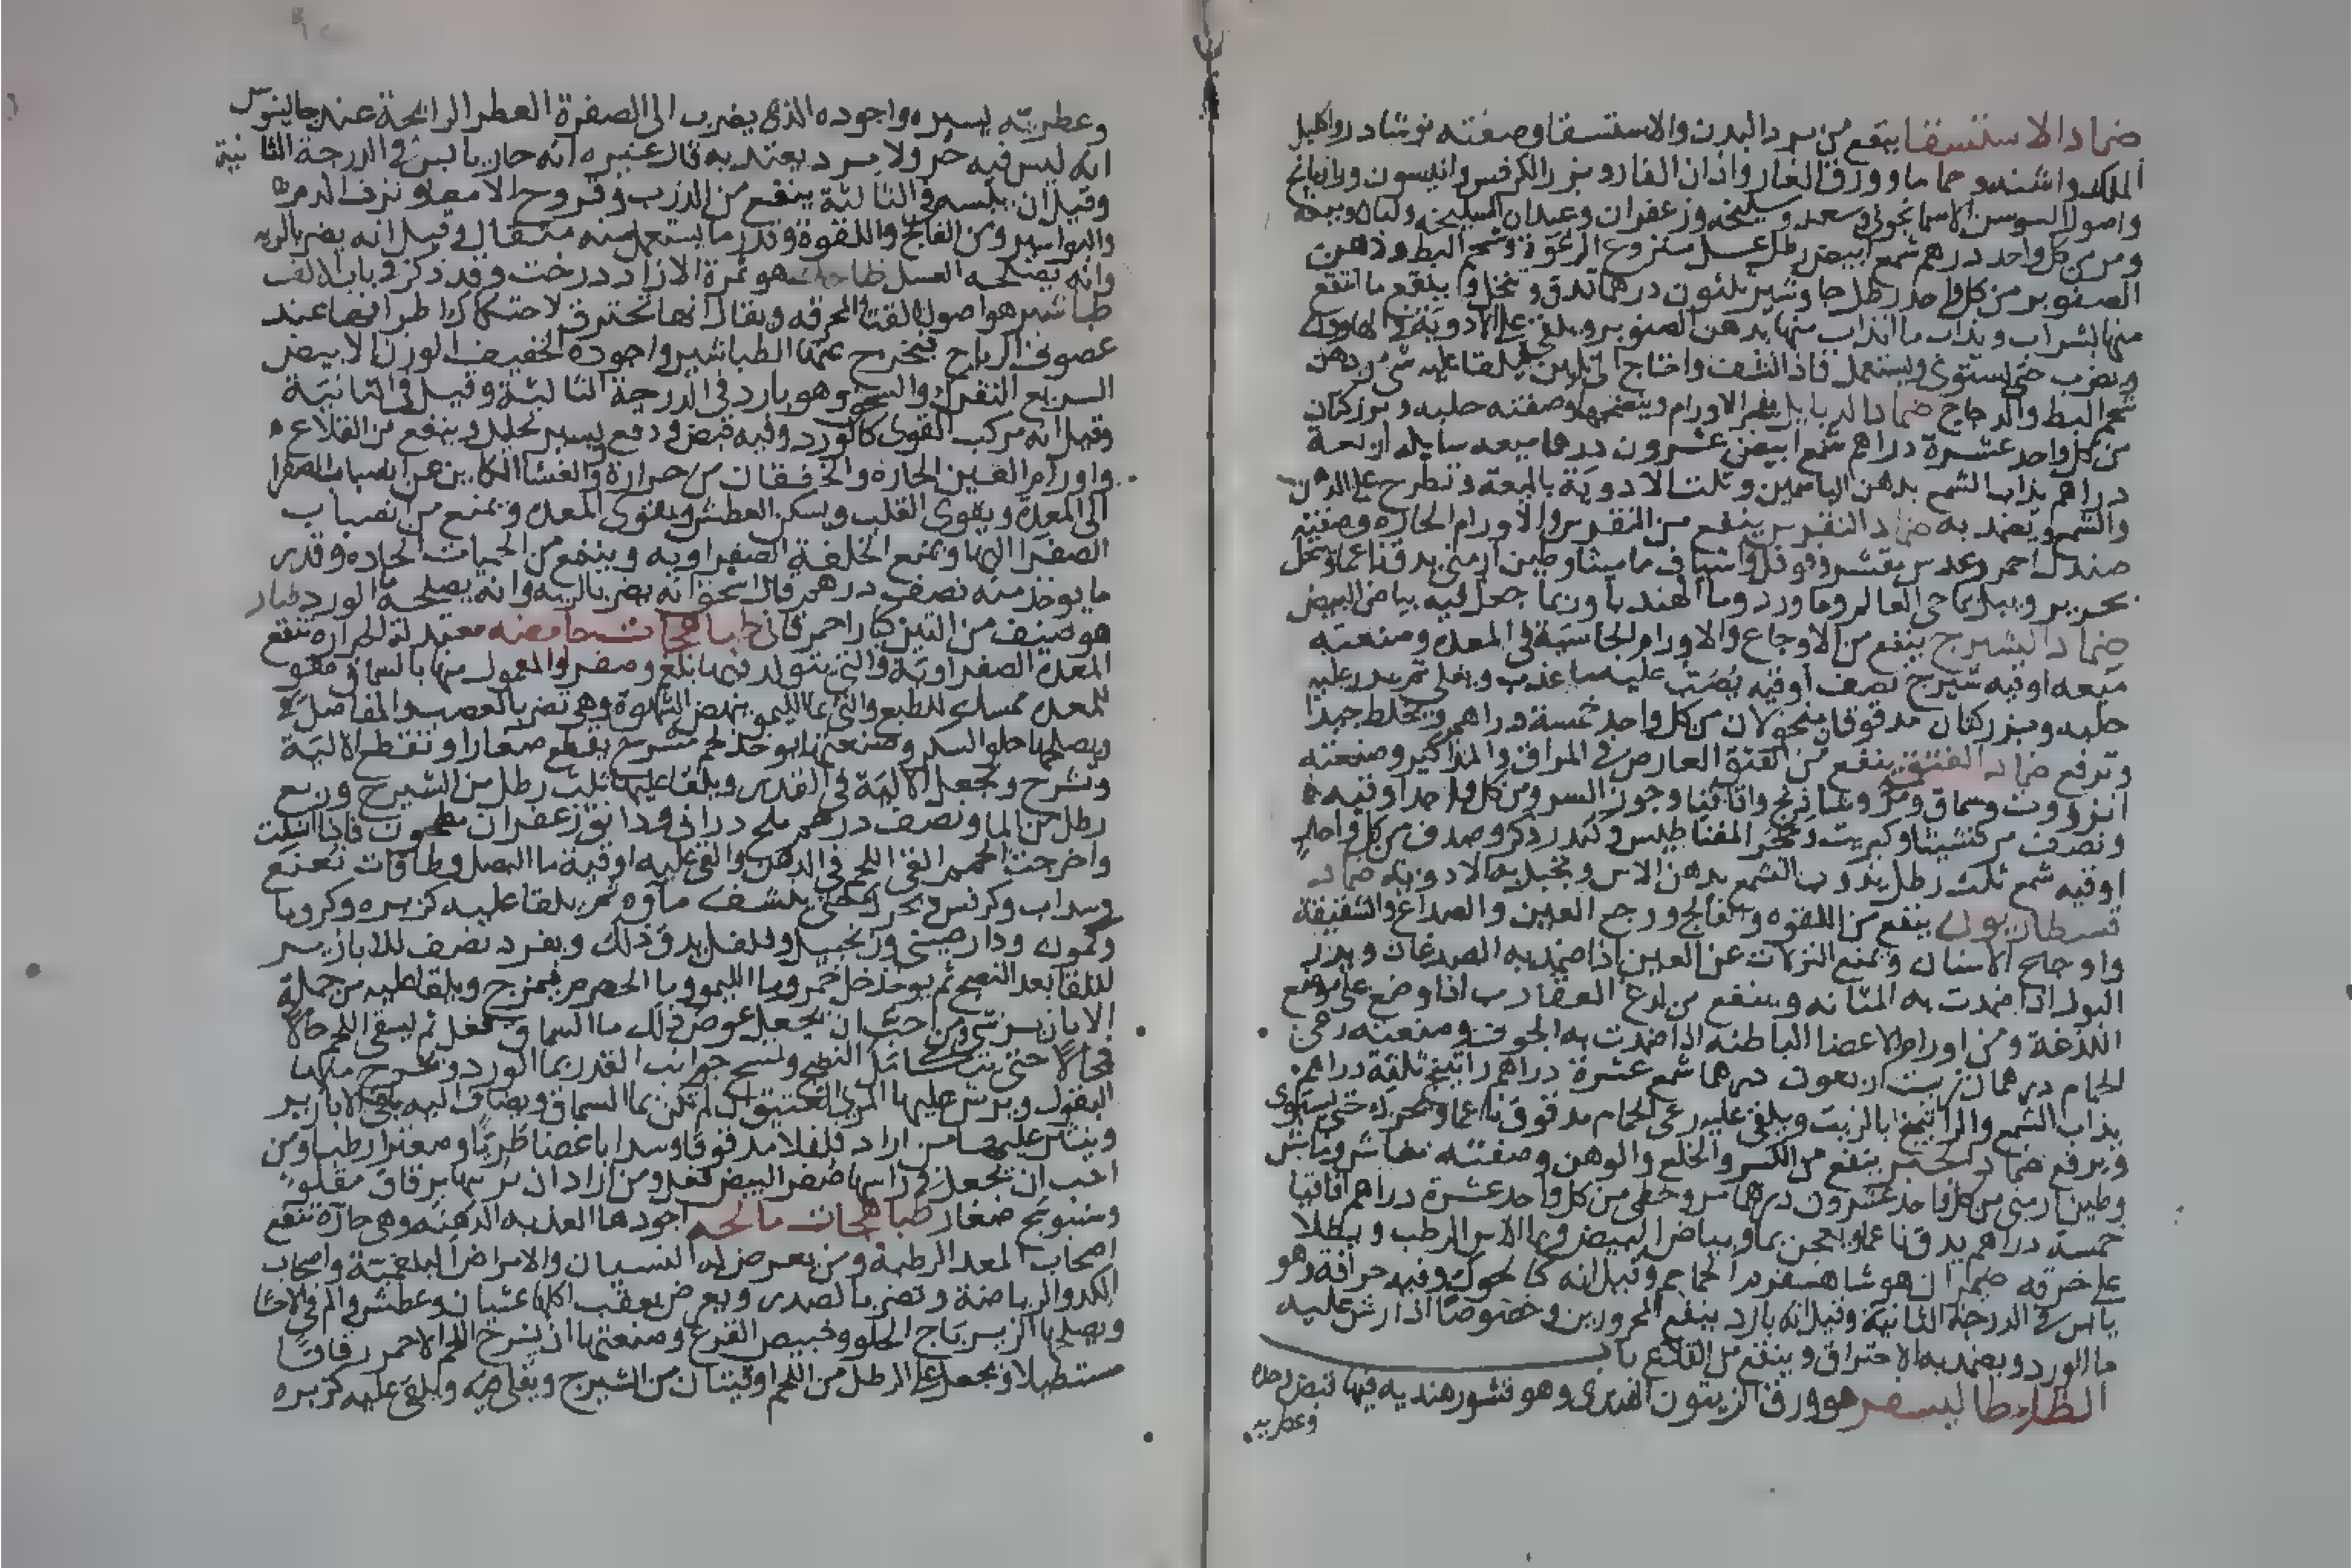 ضماد الاستسقا ينفع من برد البدن والاستسقا وصفته نوشادر واكليل
الملك واشنه وحماما وورق الغار واذان الفار وبزر الكرفس وانيسون ورازيانج
واصول السوسن الاسمانجوني وسعد وسليخه وزعفران وعيدان السليخه
ومر من كل واحد درهم شمع ابيض رطل عسل منزوع الرغوة وشحم البط ودهن
الصنوبر من كل واحد رطل جاوشير ثلثون درهما تدق وتنخل وينقع ما انتقع
منها بشراب ويذاب ما انذاب منها بدهن الصنوبر ويلقى على الادوية في الهاون
ويضرب حتى يستوي ويستعمل فاذا نشف واحتاج الى تليين يلقا عليه شي من دهن
شحم البط والدجاج ضماد الدبابل يفجر الاورام وينضجها وصفته حلبه وبزر كتان
من كل واحد عشرة دراهم شمع ابيض عشرون درهما ميعه سايله اربعة
دراهم يذاب الشمع بدهن الياسمين وتلت الادوية بالميعة وتطرح على الدهن
والشمع ويضمد به ضماد النقرس ينفع من النقرس والاورام الحاره وصفته
صندل احمر وعدس مقشر وفوفل واشياف ماميثا وطين ارمني يدق ناعما وينخل
بحرير ويبل بما حي العالم وما ورد وما الهندبا وربما جعل فيه بياض البيض
ضماد الشيرج ينفع من الاوجاع والاورام الجاسية في المعده وصنعته
ميعه اوقيه شيرج نصف اوقيه يصب عليه ما عذب ويغلى ثم يذر عليه
حلبه وبزر كتان مدقوقان منخولان من كل واحد خمسة دراهم ويخلط جيدا
وترفع ضماد الفتق ينفع من الفتق العارض في المراق والمذاكير وصنعته
انزروت وسماق ومر وشاذنج واقاقيا وجوز السرو من كل واحد اوقيه
ونصف مرقشيثا وكبريت وحجر المغناطيس وكندر ذكر وصدف من كل واحد
اوقيه شمع ثلث رطل يذوب الشمع بدهن الاس وتجبل به الادويه ضماد
ينفع من اللقوه والفالج ووجع العين والصداع والشقيقة
واوجاع الاسنان ويمنع النزلات عن العين اذا ضمد به الصدغان ويدر
البول اذا ضمدت به المثانه وينفع من لدغ العقارب اذا وضع على موضع
اللدغة ومن اورام الاعضا الباطنه اذا ضمدت به الجوف وصنعته رعي
الحمام درهمان زيت اربعون درهما شمع عشرة دراهم راتينج ثلثة دراهم
يذاب الشمع والراتينج بالزيت ويلقى عليه رعي الحمام مدقوقا ناعما ويحرك حتى يستوي
ويرفع ضماد الجبر ينفع من الكسر والخلع والوهن وصفته مغاث وماش
وطين ارمني من كل واحد عشرون درهما مر وخطمي من كل واحد عشرة دراهم اقاقيا
خمسة دراهم يدق ناعما ويعجن بما وبياض البيض وبما الاس الرطب ويطلا
على خرقه ضميران هو شاهسفرم الحماجم وقيل انه كالحوك وفيه حرافة وهو
يابس في الدرجة الثانية وقيل انه بارد ينفع المحرورين وخصوصا اذا رش عليه
ما الورد ويضمد به الاحتراق وينفع من القلاع باب
الطا طاليسفر هو ورق الزيتون الهندي وهو قشور هنديه فيها قبض وحده
وعطريه
وعطريه يسيره واجوده الذي يضرب الى الصفرة العطر الرايحة عند جالينوس
انه ليس فيه حر ولا برد يعتد به قال غيره انه حار يابس في الدرجة الثانية
وقيل ان يبسه في الثالثة ينفع من الذرب وقروح الامعا ونزف الدم
والبواسير ومن الفالج واللقوة وقدر ما يستعمل منه مثقال وقيل انه يضر بالريه
وانه يصلحه العسل هو ثمرة الازاد درخت وقد ذكر في باب الالف
طباشير هو اصول القنا المحرقه ويقال انها تحترق لاحتكاك اطرافها عند
عصوف الرياح فيخرج عنها الطباشير واجوده الخفيف الوزن الابيض
السريع التفرك والسحق وهو بارد في الدرجة الثالثة وقيل في الثانية
وقيل انه مركب القوى كالورد وفيه قبض ودفع يسير تحليل وينفع من القلاع
واورام العين الحارة والخفقان من حرارة والغشا الكاين عن انصباب الصفرا
الى المعدة ويقوي القلب ويسكن العطش ويقوي المعده ويمنع من انصباب
الصفرا اليها ويمنع الخلفة الصفراويه وينفع من الحميات الحاده وقدر
ما يوخذ منه نصف درهم قال اسحق انه يضر بالريه وانه يصلحه ما الورد
هو صنف من التين كبار احمر قاني طباهجات حامضه معتدلة الحراره تنفع
المعده الصفراوية والتي يتولد فيها بلغم وصفرا والمعمول منها بالسماق مقو
للمعده ممسك للطبع والتي بما الليمو ينهض الشهوة وهي تضر بالعصب والمفاصل
ويصلحها حلوا السكر وصنعتها يوخذ لحم مشرح يقطع صغارا وتقطع الالية
وتشرح وتجعل الالية في القدر ويلقا عليها ثلث رطل من الشيرج وربع
رطل من الما ونصف درهم ملح دراني ودانق زعفران مطحون فاذا انسلت
واخرجت الحمم القي اللحم في الدهن والقي عليه اوقية ما البصل وطاقات نعنع
وسداب وكرفس ويحرك حتى ينشف ماوه ثم يلقا عليه كزبره وكرويا
وكمون ودارصيني وزنجبيل وفلفل يدق ذلك ويفرد نصف للابازير
لتلقا بعد النضج ثم يوخذ خل خمر وما الليمو وما الحصرم فيمزج ويلقا عليه من جملة
الابازير شي ومن احب ان يجعل عوض ذلك ما السماق فعل ثم يسقى اللحم حالا
فحالا حتى يتكامل النضج وتمسح جوانب القدر بما الورد ويخرج منها
البقول ويرش عليها المري العتيق ان لم تكن بما السماق ويضاف اليه باقي الابازير
وينثر عليها من اراد فلفلا مدقوقا وسدابا غضا طريا وصعترا رطبا ومن
احب ان يجعل في راسها صفر البيض فعل ومن اراد ان يزينها برقاق مقلو
وسنبوسج صغار طباهجات مالحه اجودها العذبه الدهنه وهي حارة تنفع
اصحاب المعد الرطبة ومن يعرض له النسيان والامراض البلغمية واصحاب
الكد والرياضة وتضر بالصدر ويعرض بعقب اكلها غثيان وعطش والم في الاحشا
ويصلحها الزيرباج الحلو وخبيص القرع وصنعتها ان يشرح اللحم الاحمر رقاقا
مستطيلا ويجعل على الرطل من اللحم اوقيتان من الشيرج ويغلى فيه ويلقى عليه كزبره